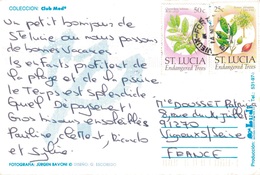 COLLECCION Club Med
Un petit bonjour de
Ste Lucie où nous passons
de bonnes vacances
les enfants profitent de
la plage et de la piscine
le Temps est splendide.
Quel Dépaysement!
Gros bisous ensoleillés
Pauline, Clément,
et Sylvie
FOTOGRAFIA: JURGEN BAVONI
50c
ST. LUCIA
Endangered Trees
25c
ST. LUCIA
Endangered Trees
POUSSET
8 rue du
91270
Vigneux S/Seine
FRANCE